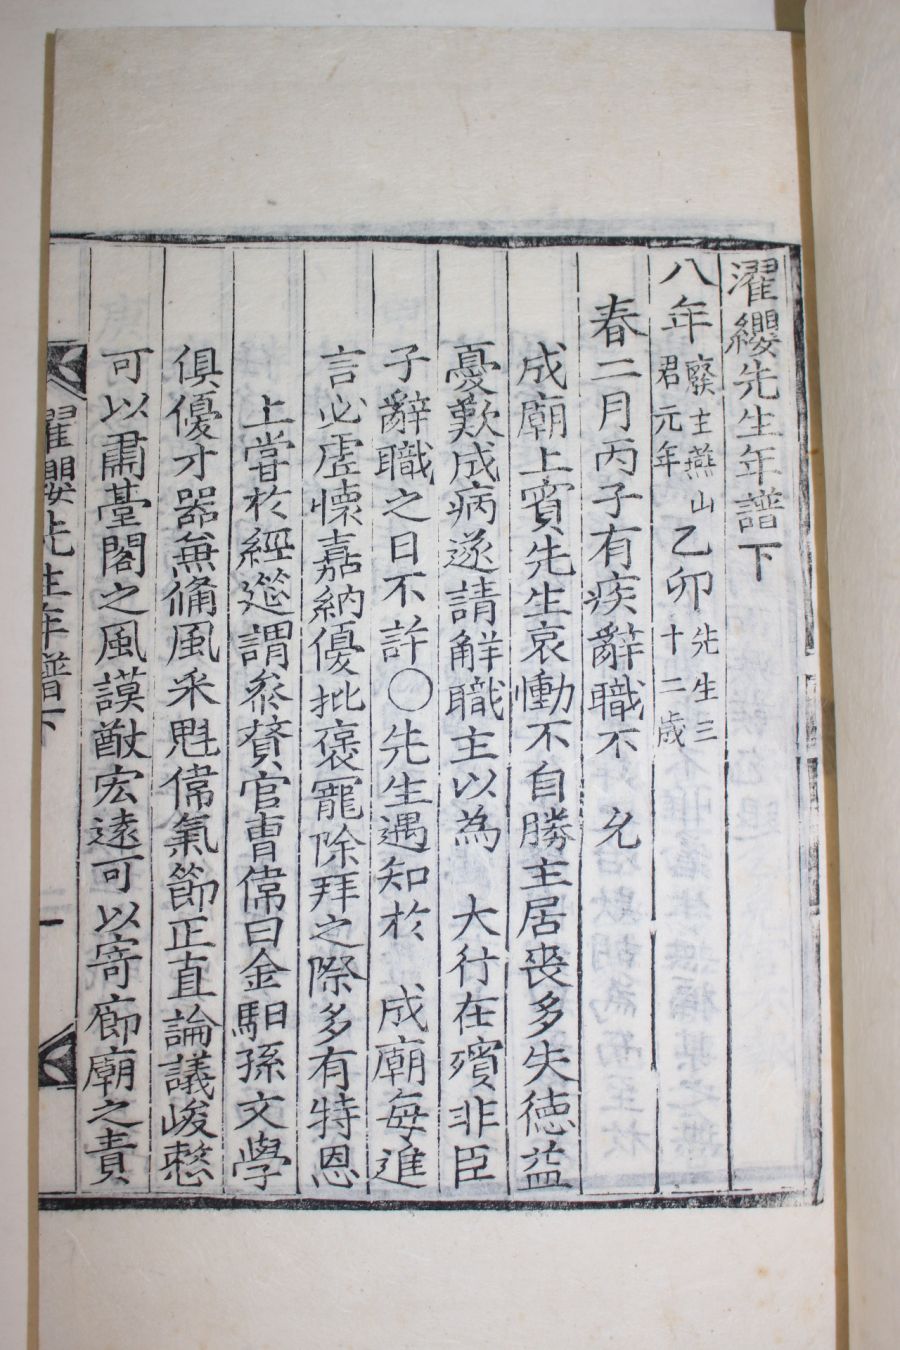 濯纓先生年譜下
八年廢主燕山君元年乙卯先生三十二歲
春二月丙子有疾辭職不 允
成廟上賓先生哀慟不自勝主居喪多失德益
憂歎成病遂請解職主以爲 大行在殯非臣
子辭職之日不許〇先生遇知於 成廟每進
言必虛懷嘉納優批褒寵除拜之際多有特恩
上嘗於經筵謂參贊官曺偉曰金馹孫文學
俱優才器無備風采魁偉氣節正直論議峻整
可以肅臺閣之風謨猷宏遠可以寄廊廟之責
濯纓先生年譜下
一